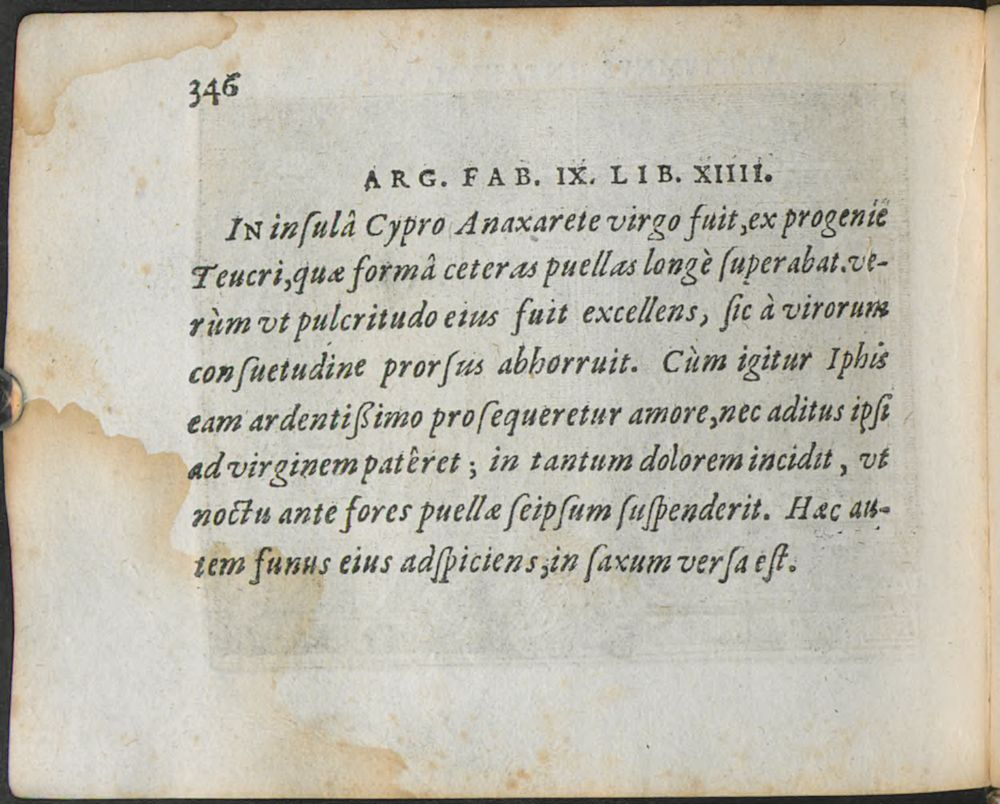 346
ARG. FAB. IX. LIB. XIIII.
IN inſulâ Cypro Anaxarete virgo fuit, ex progenie
Teucri, quæ formâ ceteras puellas longè ſuperabat. ve-
rùm vt pulcritudo eius fuit excellens, ſic à virorum
conſuetudine prorſus abhorruit. Cùm igitur Iphis
eam ardentißimo proſequeretur amore, nec aditus ipſi
ad virginem patêret; in tantum dolorem incidit, vt
noctu ante fores puellæ ſeipſum ſuſpenderit. Hæc au-
tem funus eius adſpiciens, in ſaxum verſa eſt.